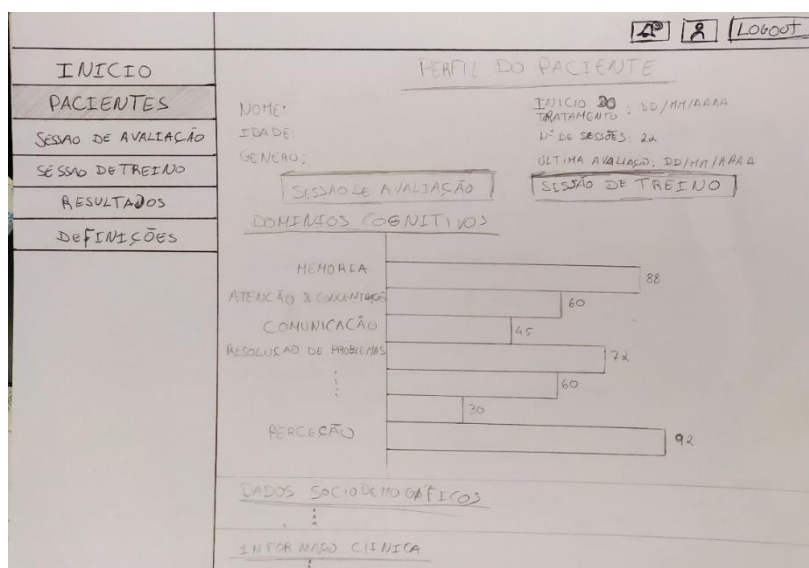 LOGOUT
INICIO
PACIENTES
SESSAO DE AVALIAÇÃO
SESSAO DE TREINO
RESULTADOS
DEFINIÇÕES
PERFIL DO PACIENTE
NOME:
IDADE:
GENERO:
INICIO DO
TRATAMENTO : DD/MM/AAAA
Nº DE SESSÕES: 22
ULTIMA AVALIAÇO: DD/MM/AAAA
SESSAO DE AVALIAÇÃO
SESSÃO DE TREINO
DOMINIOS COGNITIVOS
MEMORIA 88
ATENÇÃO & CONCENTRAÇÃO 60
COMUNICAÇÃO 45
RESOLUÇAO DE PROBLEMAS 72
60
30
PERCEÇÃO 92
DADOS SOCIODEMOGÁFICOS
INFORMAÇO CLINICA